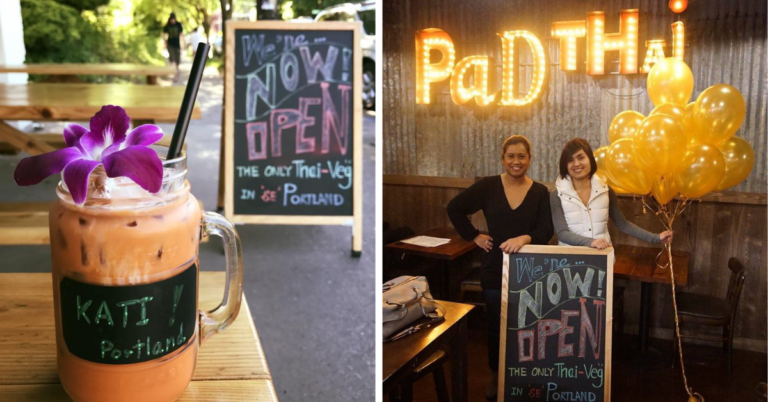 We're...
NOW!
OPEN
THE ONLY THAI-VEG
IN 'SE' PORTLAND
KATI!
Portland
PaD THai
We're...
NOW!
OPEN
THE ONLY THAI-VEG
IN 'SE' PORTLAND